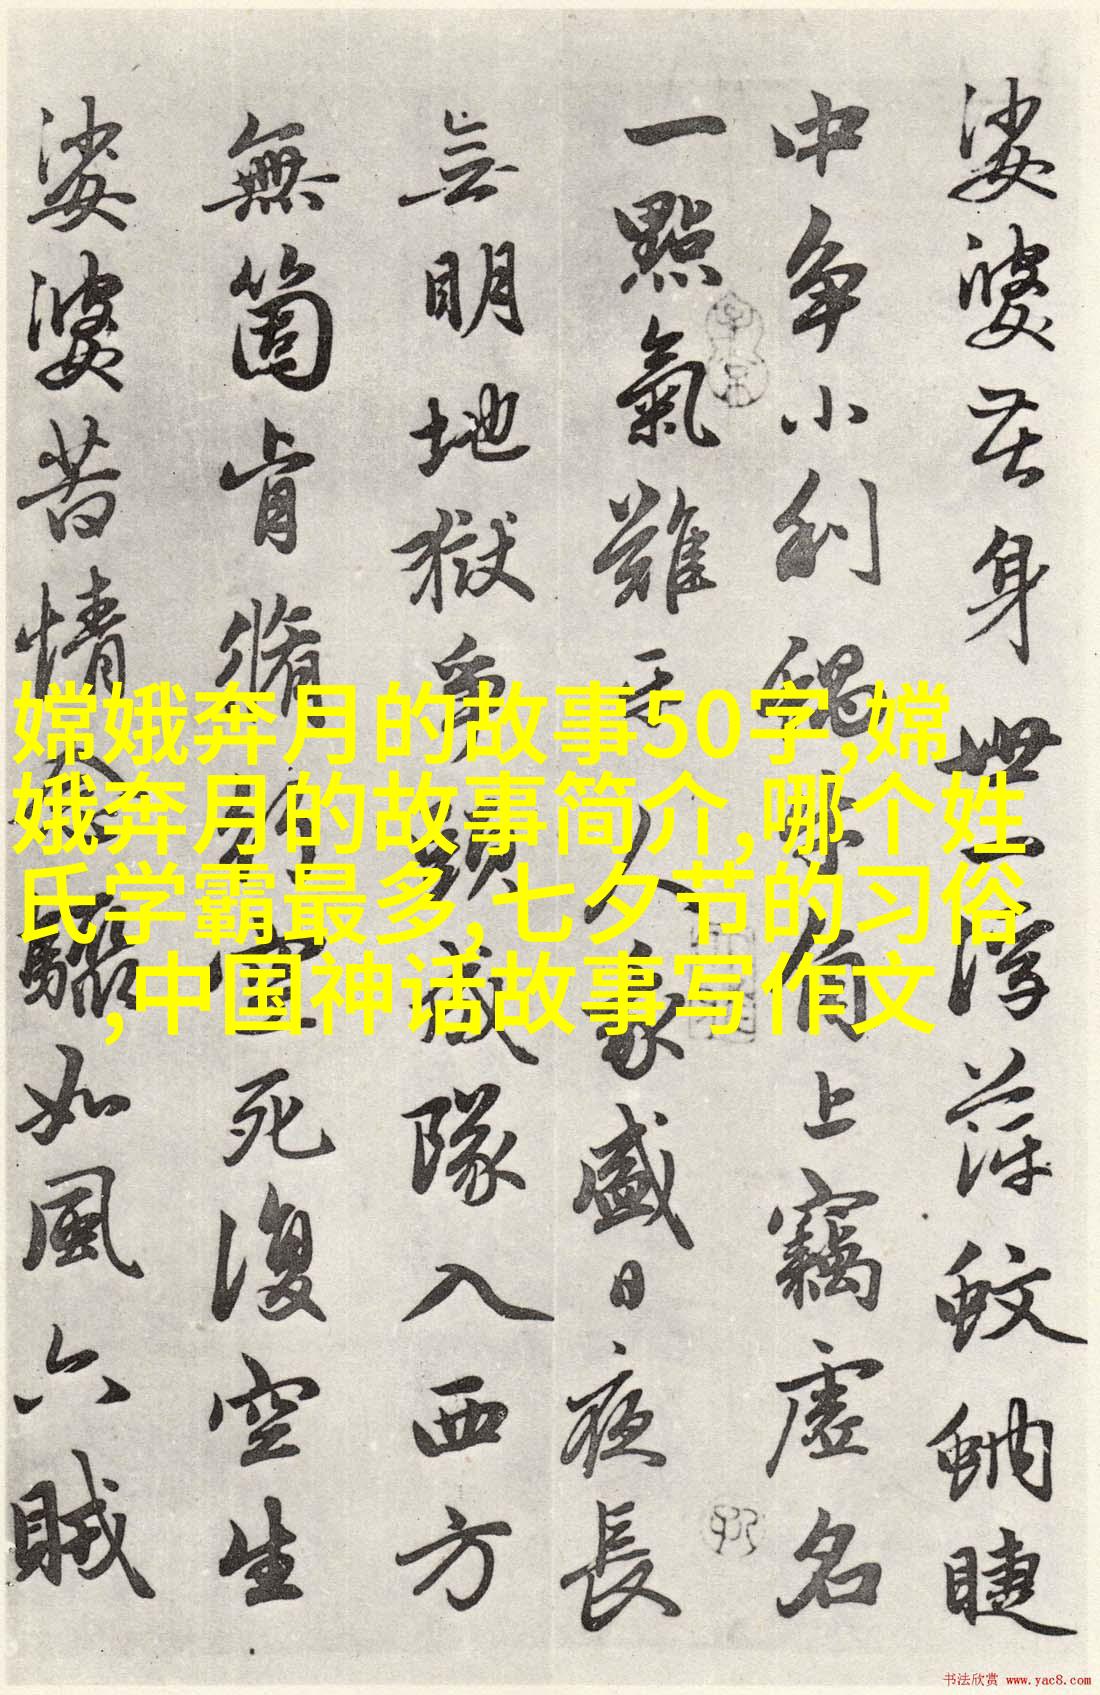 娑婆苦身世一浮萍蚊蚋睫
中争小利蝸牛角上竊虛名
一點氣難平人我盛日夜長
无明地獄争頭成隊入西方
無箇肯脩行空死復空生
娑婆苦情念驟如風六賊
嫦娥奔月的故事50字,嫦
娥奔月的故事简介,哪个姓
氏学霸最多,七夕节的习俗
,中国神话故事写作文
书法欣赏 www.yac8.com